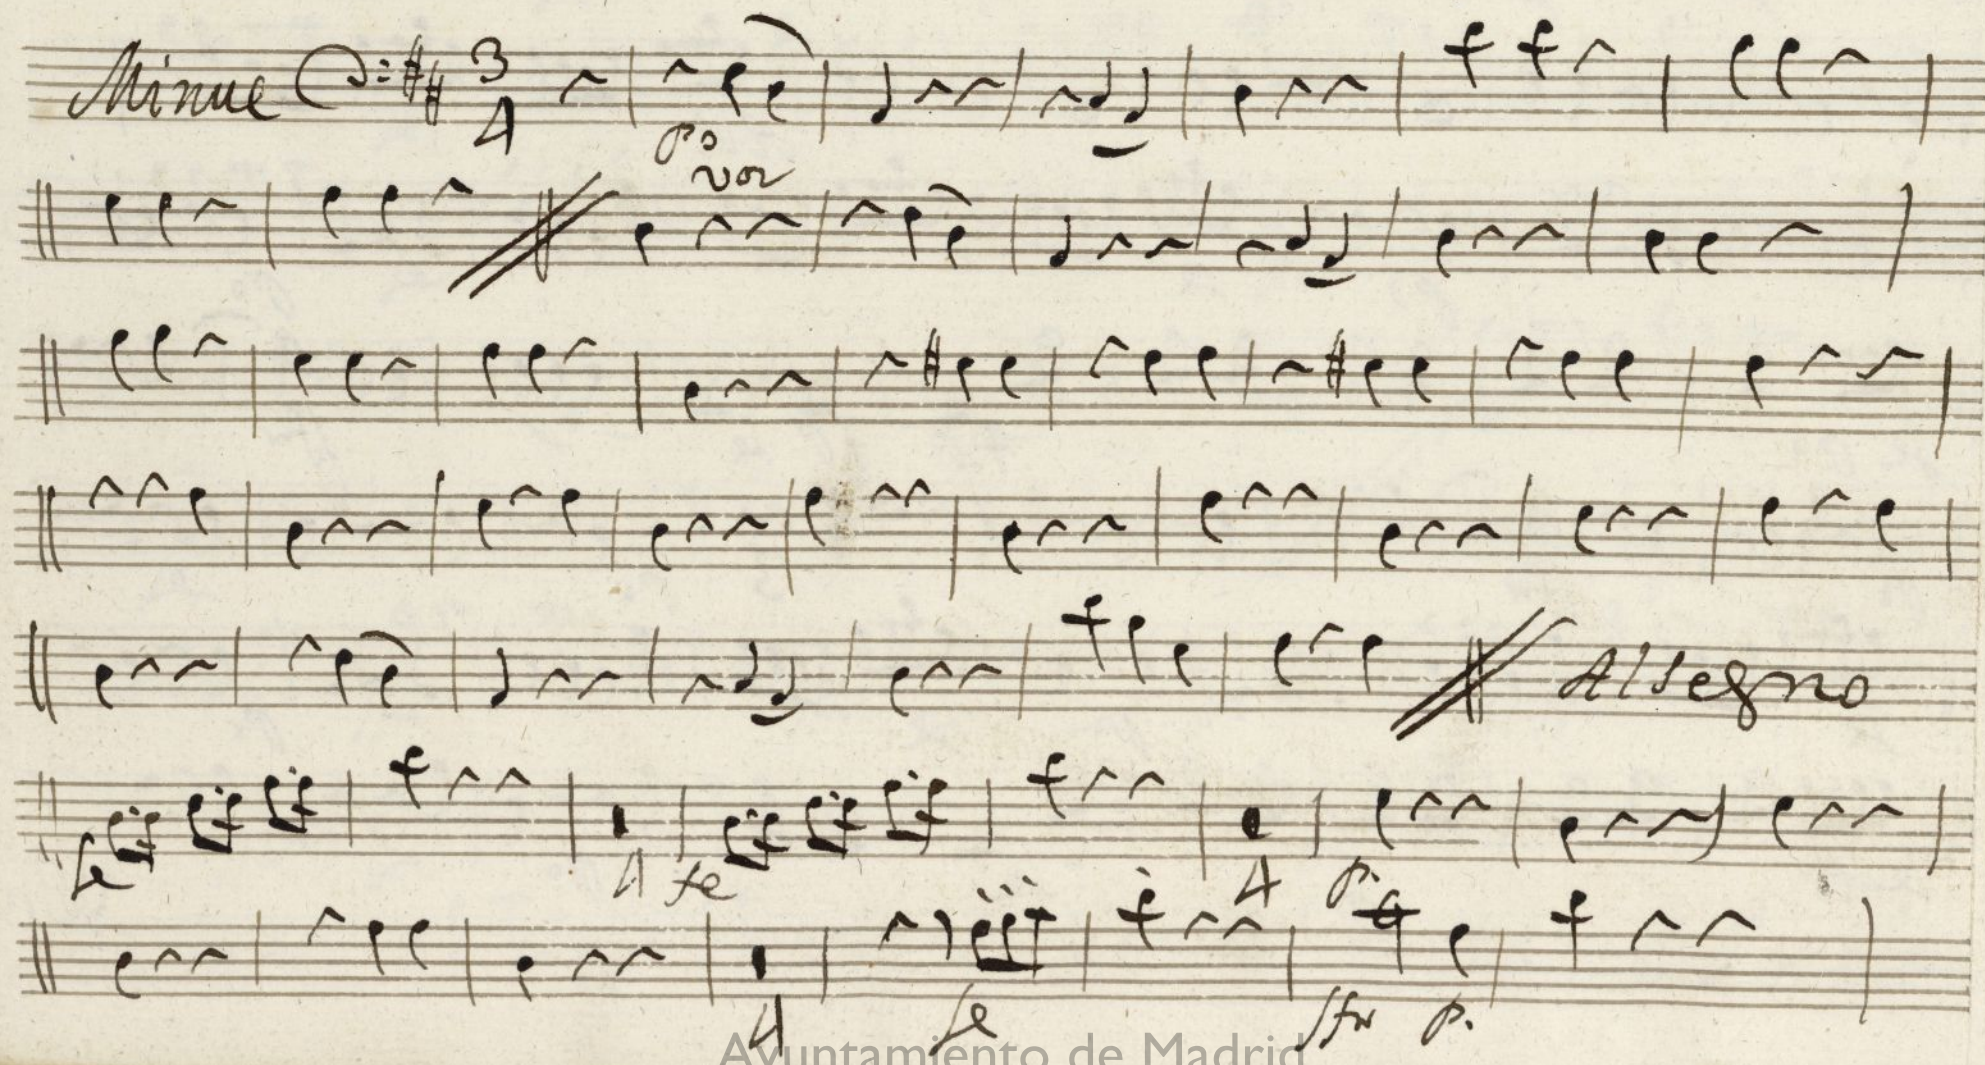 Minue 3 4
po
voz
Al Segno
fe 4 fe 4 p.
4 fe sfr p.
Ayuntamiento de Madrid